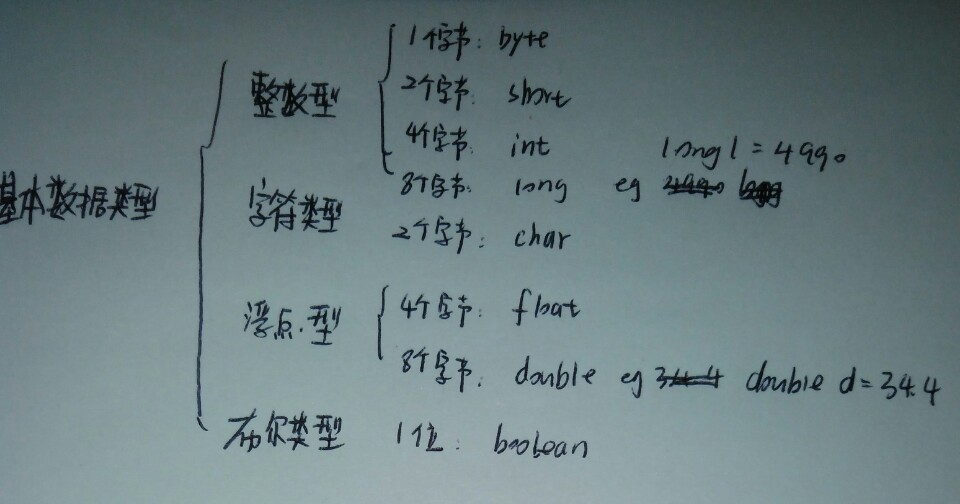 基本数据类型
整数型
1个字节: byte
2个字节: short
4个字节: int
long l = 4990
8个字节: long eg
字符类型
2个字节: char
浮点型
4个字节: float
8个字节: double eg 34.4 double d = 34.4
布尔类型 1位: boolean